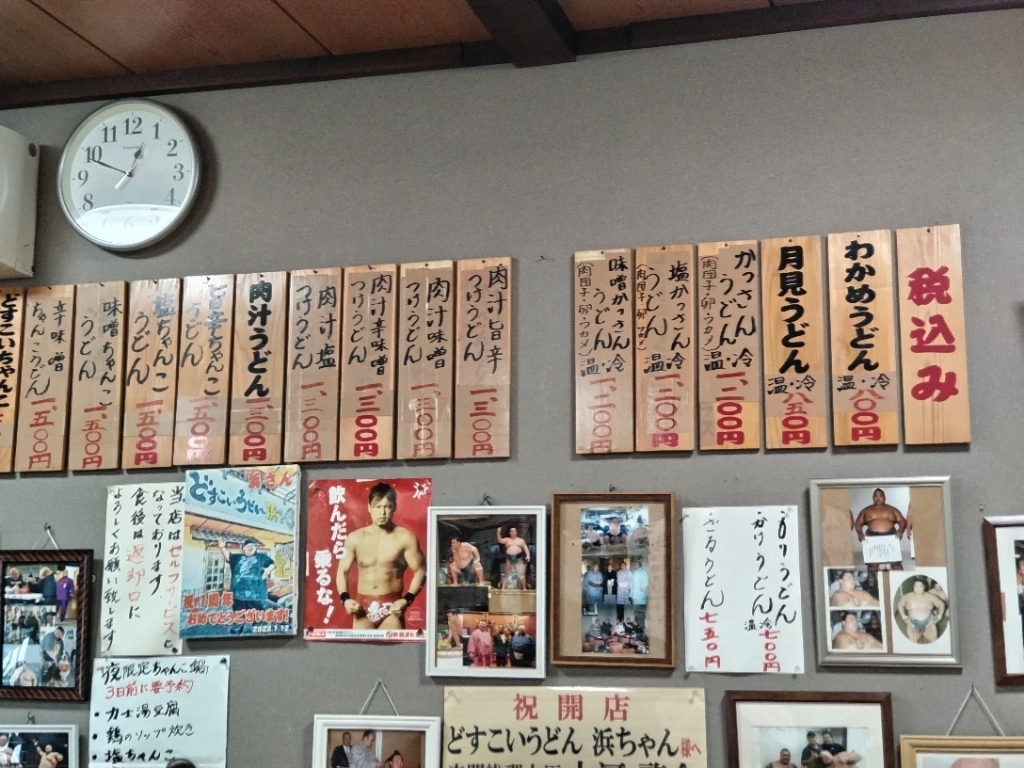 税込み
わかめうどん
温・冷
八〇〇円
月見うどん
温・冷
八五〇円
かっさん
うどん 温・冷
(肉団子・卵・ワカメ)
一、二〇〇円
塩かっさん
うどん 温
(肉団子・卵・ワカメ)
一、二〇〇円
味噌かっさん
うどん 温・冷
(肉団子・卵・ワカメ)
一、二〇〇円
肉汁旨辛
つけうどん
一、三〇〇円
肉汁味噌
つけうどん
一、三〇〇円
肉汁辛味噌
つけうどん
一、三〇〇円
肉汁塩
つけうどん
一、三〇〇円
肉汁うどん
一、三〇〇円
旨辛ちゃんこ
うどん
一、五〇〇円
塩ちゃんこ
うどん
一、五〇〇円
味噌ちゃんこ
うどん
一、五〇〇円
辛味噌
ちゃんこうどん
一、五〇〇円
どすこいちゃんこ
12
1
2
3
4
8
9
10
11
当店はセルフサービスと
なっております
食後は返却口に
よろしくお願い致します
浜さん
どすこいうどん
祝1周年
おめでとうございます!
2022.1.12
飲んだら
乗るな!
もりうどん
かけうどん 温・冷 七〇〇円
ざるうどん 七五〇円
夜限定ちゃんこ鍋
3日前に要予約
・力士湯豆腐
・鶏のソップ炊き
・塩ちゃんこ
祝開店
どすこいうどん 浜ちゃん様へ